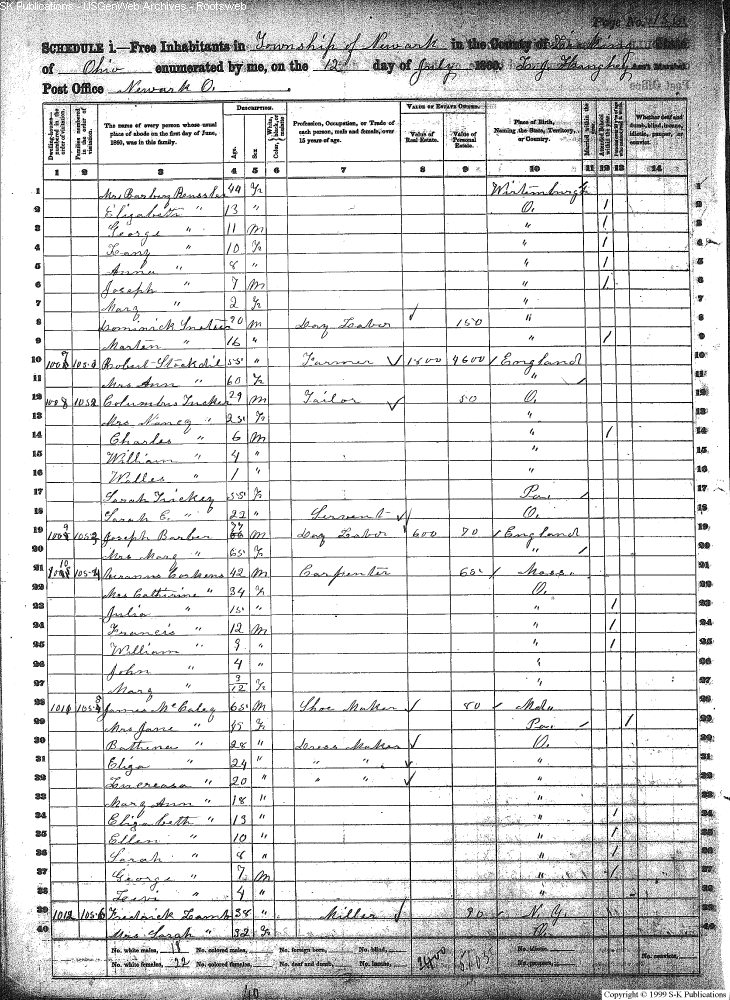 SK Publications - USGenWeb Archives - Rootsweb
Page No.
SCHEDULE 1.—Free Inhabitants in Township of Newark in the County of Licking State
of Ohio enumerated by me, on the 12 day of July 1860. Ass't Marshal
Post Office Newark O.
Dwelling-houses—numbered in the order of visitation.
Families numbered in the order of visitation.
The name of every person whose usual place of abode on the first day of June, 1860, was in this family.
DESCRIPTION.
Age.
Sex
Color, White, black, or mulatto
Profession, Occupation, or Trade of each person, male and female, over 15 years of age.
VALUE OF ESTATE OWNED.
Value of Real Estate.
Value of Personal Estate.
Place of Birth, Naming the State, Territory, or Country.
Married within the year
Whether deaf and dumb, blind, insane, idiotic, pauper, or convict.
1 2 3 4 5 6 7 8 9 10 11 12 13 14
1 Mrs Barbary 44 F Wirtemburg
2 Elizabeth " 13 " O. /
3 George " 11 M " /
4 " 10 F " /
5 Anna " 8 " " /
6 Joseph " 7 M " /
7 Mary " 2 F "
8 Dominick 20 M Day Labor 150 "
9 Martin " 16 " " /
10 Robert Stockdil 55 " Farmer 1800 4600 / England
11 Mrs Ann " 60 F " /
12 1008 1052 Columbus Tucker 29 M Tailor 50 O.
13 Mrs Nancy " 25 F "
14 Charles " 6 M " /
15 William " 4 " "
16 " 1 " "
17 Sarah Trickey 55 F Pa. /
18 Sarah E. " 22 " Servent O.
19 1053 Joseph Barber M Day Labor 600 70 / England
20 Mrs Mary " 65 F " /
21 1054 42 M Carpenter 65 / Mass.
22 Mrs Catherine " 34 F O.
23 Julia " 15 " " /
24 Francis " 12 M " /
25 William " 9 " " /
26 John " 4 " "
27 Mary " 3/12 F "
28 1011 James McCaley 65 M Shoe Maker 80 Md.
29 Mrs Jane " 45 F Pa. / /
30 Bathena " 28 " Dress Maker O.
31 Eliza " 24 " " " "
32 " 20 " " " "
33 Mary Ann " 18 " "
34 Elizabeth " 13 " " /
35 Ellen " 10 " " /
36 Sarah " 8 " " /
37 George " 7 M " /
38 Levi " 4 " "
39 1012 1056 Fredrick Lamb 38 " Miller 90 N.Y.
40 Mrs Sarah " 32 F O.
No. white males, 18 No. colored males, No. foreign born, No. blind, No. idiotic,
No. white females, 22 No. colored females, No. deaf and dumb, No. insane, No. paupers, No. convicts,
2400
40
Copyright © 1999 S-K Publications